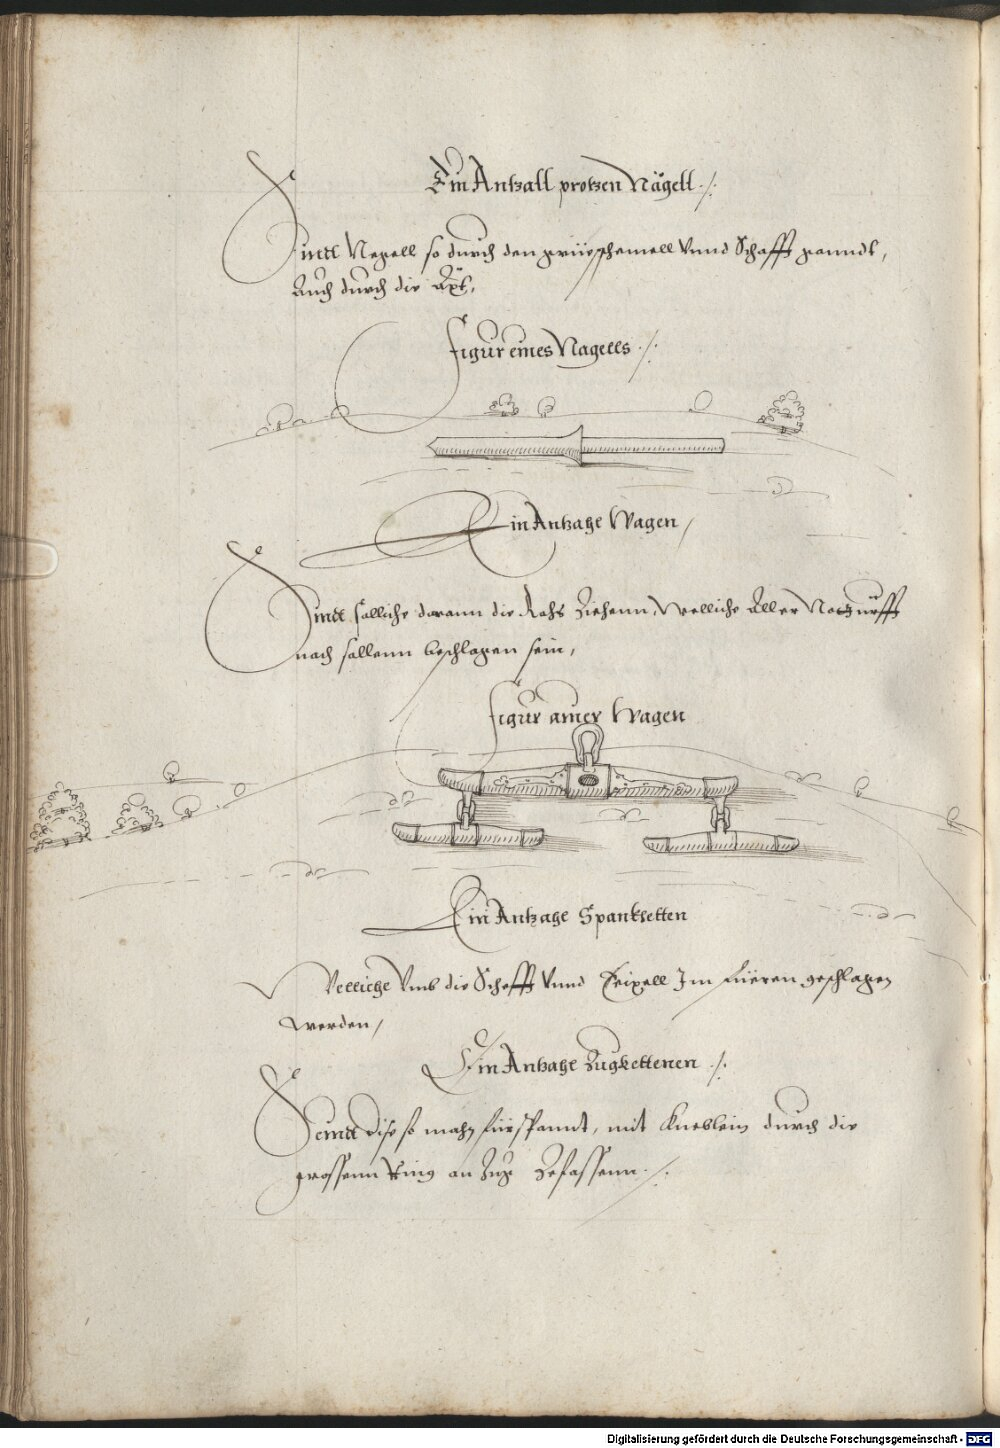 Ein Antzall protzen Nägell ./.
Sindt Negell so durch den prüss schemell Vnnd Schafft ganndt,
Auch durch die Axt,
Figur eines Nagells ./.
Ein Antzahl Wagen /
Sindt solliche darann die Roß Ziehenn, Welliche Aller Notturfft
nach sollenn beschlagen sein,
Figur ainer Wagen
Ein Antzahl Spanketten
Welliche Vmb die Schefft Vnnd Im füeren geschlagen
werden /
Ein Antzahl Zugkettenen ./.
Seindt dise so mahn fürspannt, mit Kneblein durch die
grossenn Ring an Zuge Zefassenn ./.
Digitalisierung gefördert durch die Deutsche Forschungsgemeinschaft - DFG